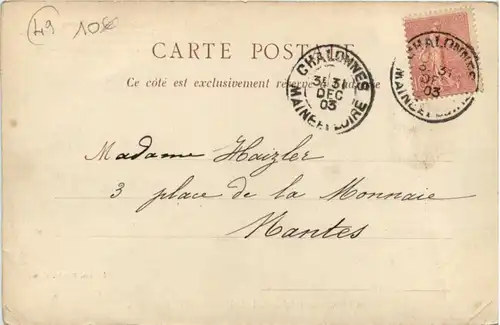 49 10€
CARTE POSTALE
Ce côté est exclusivement réservé à l'adresse
CHALONNES
31 DEC 03
MAINE ET LOIRE
CHALONNES
31 DEC 03
MAINE ET LOIRE
Madame Haizler
3 place de la Monnaie
Nantes